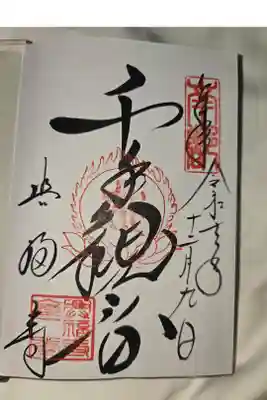 奉拝
令和元年
十一月九日
千手観音
興福寺